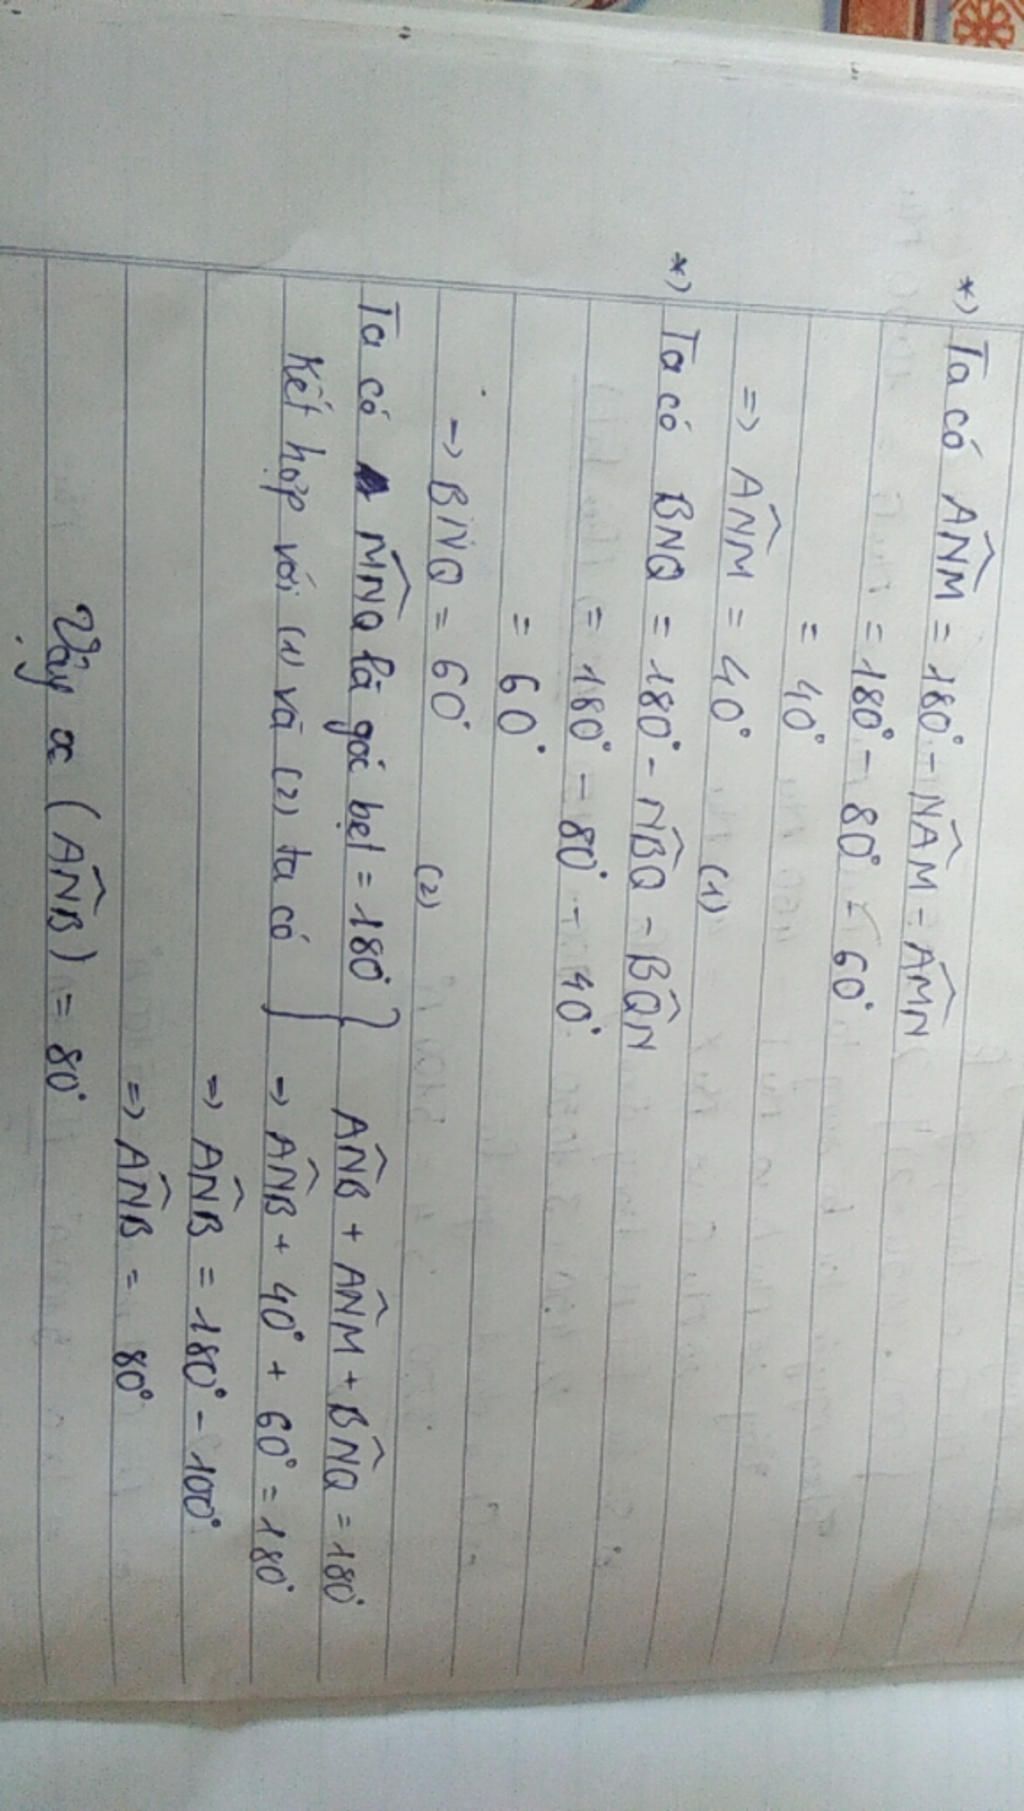 *) Ta có AN̂M = 180° - NÂM - AM̂N
= 180° - 80° - 60°
= 40°
=> AN̂M = 40° (1)
*) Ta có BNQ = 180° - NB̂Q - BQ̂N
= 180° - 80° - 40°
= 60°
-> BNQ = 60° (2)
Ta có MN̂Q là góc bẹt = 180° } AN̂B + AN̂M + BN̂Q = 180°
Kết hợp với (1) và (2) ta có => AN̂B + 40° + 60° = 180°
=> AN̂B = 180° - 100°
=> AN̂B = 80°
Vậy x (AN̂B) = 80°